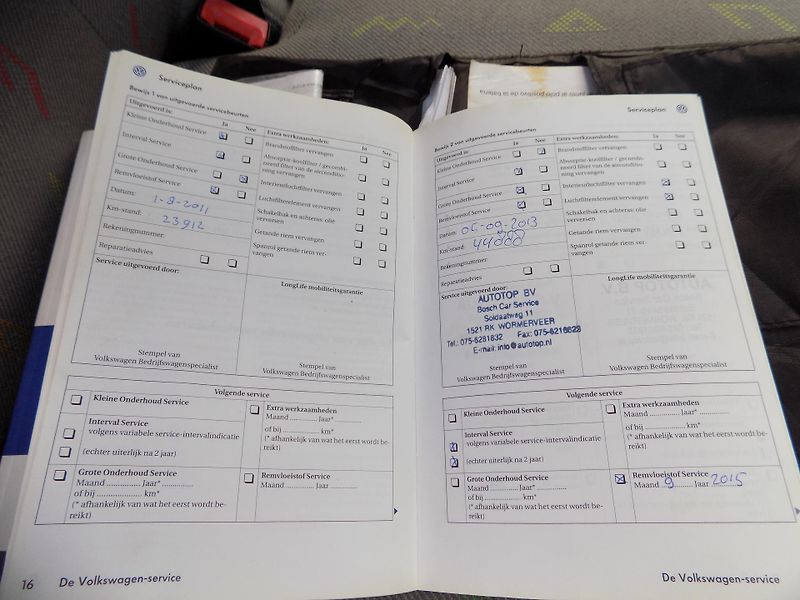 Serviceplan
Bewijs 1 van uitgevoerde servicebeurten
Uitgevoerd is: Ja Nee
Kleine Onderhoud Service
Interval Service
Grote Onderhoud Service
Remvloeistof Service
Datum: 1-8-2011
Km-stand: 23912
Rekeningnummer:
Reparatieadvies
Service uitgevoerd door:
Stempel van
Volkswagen Bedrijfswagenspecialist
Extra werkzaamheden: Ja Nee
Brandstoffilter vervangen
Absorptie-koolfilter / gecombi-
neerd filter van de airconditio-
ning vervangen
Interieurluchtfilter vervangen
Luchtfilterelement vervangen
Schakelbak en achteras: olie
verversen
Getande riem vervangen
Spanrol getande riem ver-
vangen
LongLife mobiliteitsgarantie
Stempel van
Volkswagen Bedrijfswagenspecialist
Volgende service
Kleine Onderhoud Service
Interval Service
volgens variabele service-intervalindicatie
(echter uiterlijk na 2 jaar)
Grote Onderhoud Service
Maand ............ Jaar* ............
of bij ............ km*
(* afhankelijk van wat het eerst wordt be-
reikt)
Extra werkzaamheden
Maand ............ Jaar* ............
of bij ............ km*
(* afhankelijk van wat het eerst wordt be-
reikt)
Remvloeistof Service
Maand ............ Jaar ............
16 De Volkswagen-service
Serviceplan
Bewijs 2 van uitgevoerde servicebeurten
Uitgevoerd is: Ja Nee
Kleine Onderhoud Service
Interval Service
Grote Onderhoud Service
Remvloeistof Service
Datum: 05-09-2013
Km-stand: 44000
Rekeningnummer
Reparatieadvies
Service uitgevoerd door:
AUTOTOP BV
Bosch Car Service
Soldaatweg 11
1521 RK WORMERVEER
Tel.: 075-6281832 Fax: 075-6216628
E-mail: info@autotop.nl
Stempel van
Volkswagen Bedrijfswagenspecialist
Extra werkzaamheden: Ja Nee
Brandstoffilter vervangen
Absorptie-koolfilter / gecombi-
neerd filter van de airconditio-
ning vervangen
Interieurluchtfilter vervangen
Luchtfilterelement vervangen
Schakelbak en achteras: olie
verversen
Getande riem vervangen
Spanrol getande riem ver-
vangen
LongLife mobiliteitsgarantie
Stempel van
Volkswagen Bedrijfswagenspecialist
Volgende service
Kleine Onderhoud Service
Interval Service
volgens variabele service-intervalindicatie
(echter uiterlijk na 2 jaar)
Grote Onderhoud Service
Maand ............ Jaar* ............
of bij ............ km*
(* afhankelijk van wat het eerst wordt be-
reikt)
Extra werkzaamheden
Maand ............ Jaar* ............
of bij ............ km*
(* afhankelijk van wat het eerst wordt be-
reikt)
Remvloeistof Service
Maand 9 Jaar 2015
De Volkswagen-service